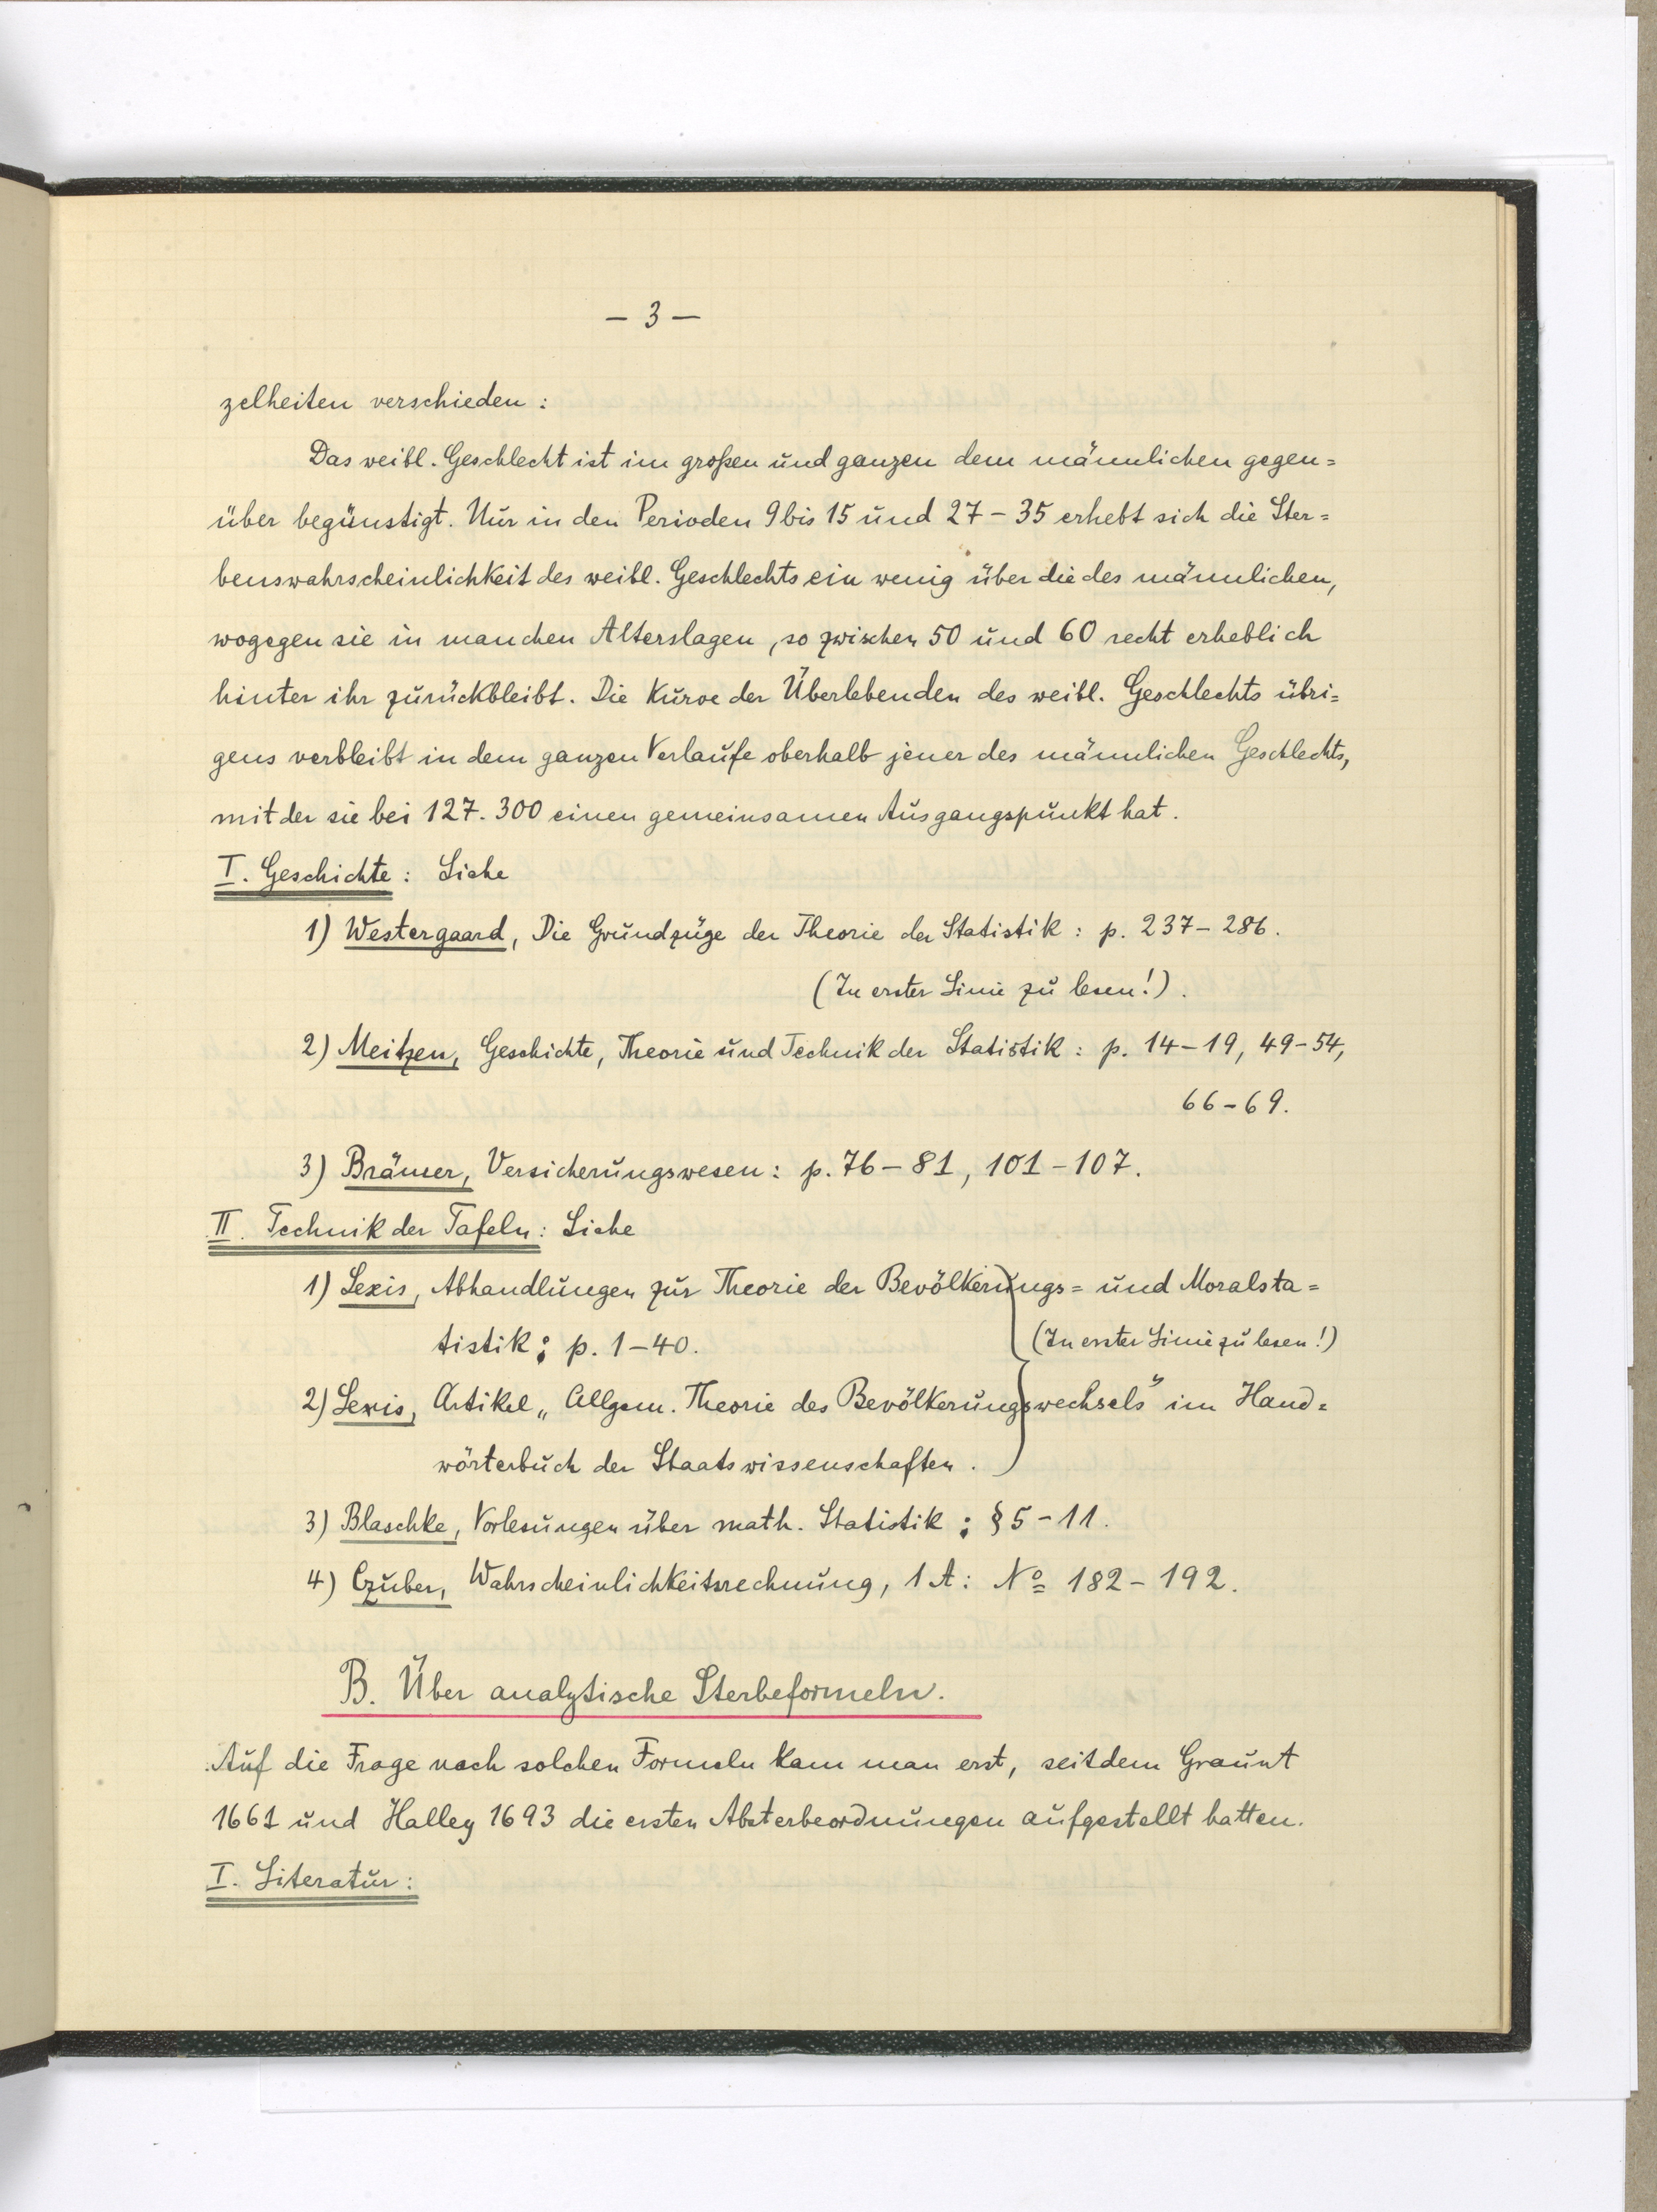 – 3 –
zelheiten verschieden:
Das weibl. Geschlecht ist im großen und ganzen dem männlichen gegen=
über begünstigt. Nur in den Perioden 9 bis 15 und 27 – 35 erhebt sich die Ster=
benswahrscheinlichkeit des weibl. Geschlechts ein wenig über die des männlichen,
wogegen sie in manchen Alterslagen, so zwischen 50 und 60 recht erheblich
hinter ihr zurückbleibt. Die Kurve der Überlebenden des weibl. Geschlechts übri=
gens verbleibt in dem ganzen Verlaufe oberhalb jener des männlichen Geschlechts,
mit der sie bei 127.300 einen gemeinsamen Ausgangspunkt hat.
I. Geschichte: Siehe
1) Westergaard, Die Grundzüge der Theorie der Statistik: p. 237 – 286.
(In erster Linie zu lesen!).
2) Meitzen, Geschichte, Theorie und Technik der Statistik: p. 14 – 19, 49 – 54,
66 – 69.
3) Brämer, Versicherungswesen: p. 76 – 81, 101 – 107.
II. Technik der Tafeln: Siehe
1) Lexis, Abhandlungen zur Theorie der Bevölkerungs= und Moralsta=
tistik; p. 1 – 40. (In erster Linie zu lesen!)
2) Lexis, Artikel „Allgem. Theorie des Bevölkerungswechsels" im Hand=
wörterbuch der Staatswissenschaften.
3) Blaschke, Vorlesungen über math. Statistik; § 5 – 11.
4) Czuber, Wahrscheinlichkeitsrechnung, 1 A: No 182 – 192.
B. Über analytische Sterbeformeln.
Auf die Frage nach solchen Formeln kam man erst, seitdem Graunt
1661 und Halley 1693 die ersten Absterbeordnungen aufgestellt hatten.
I. Literatur: